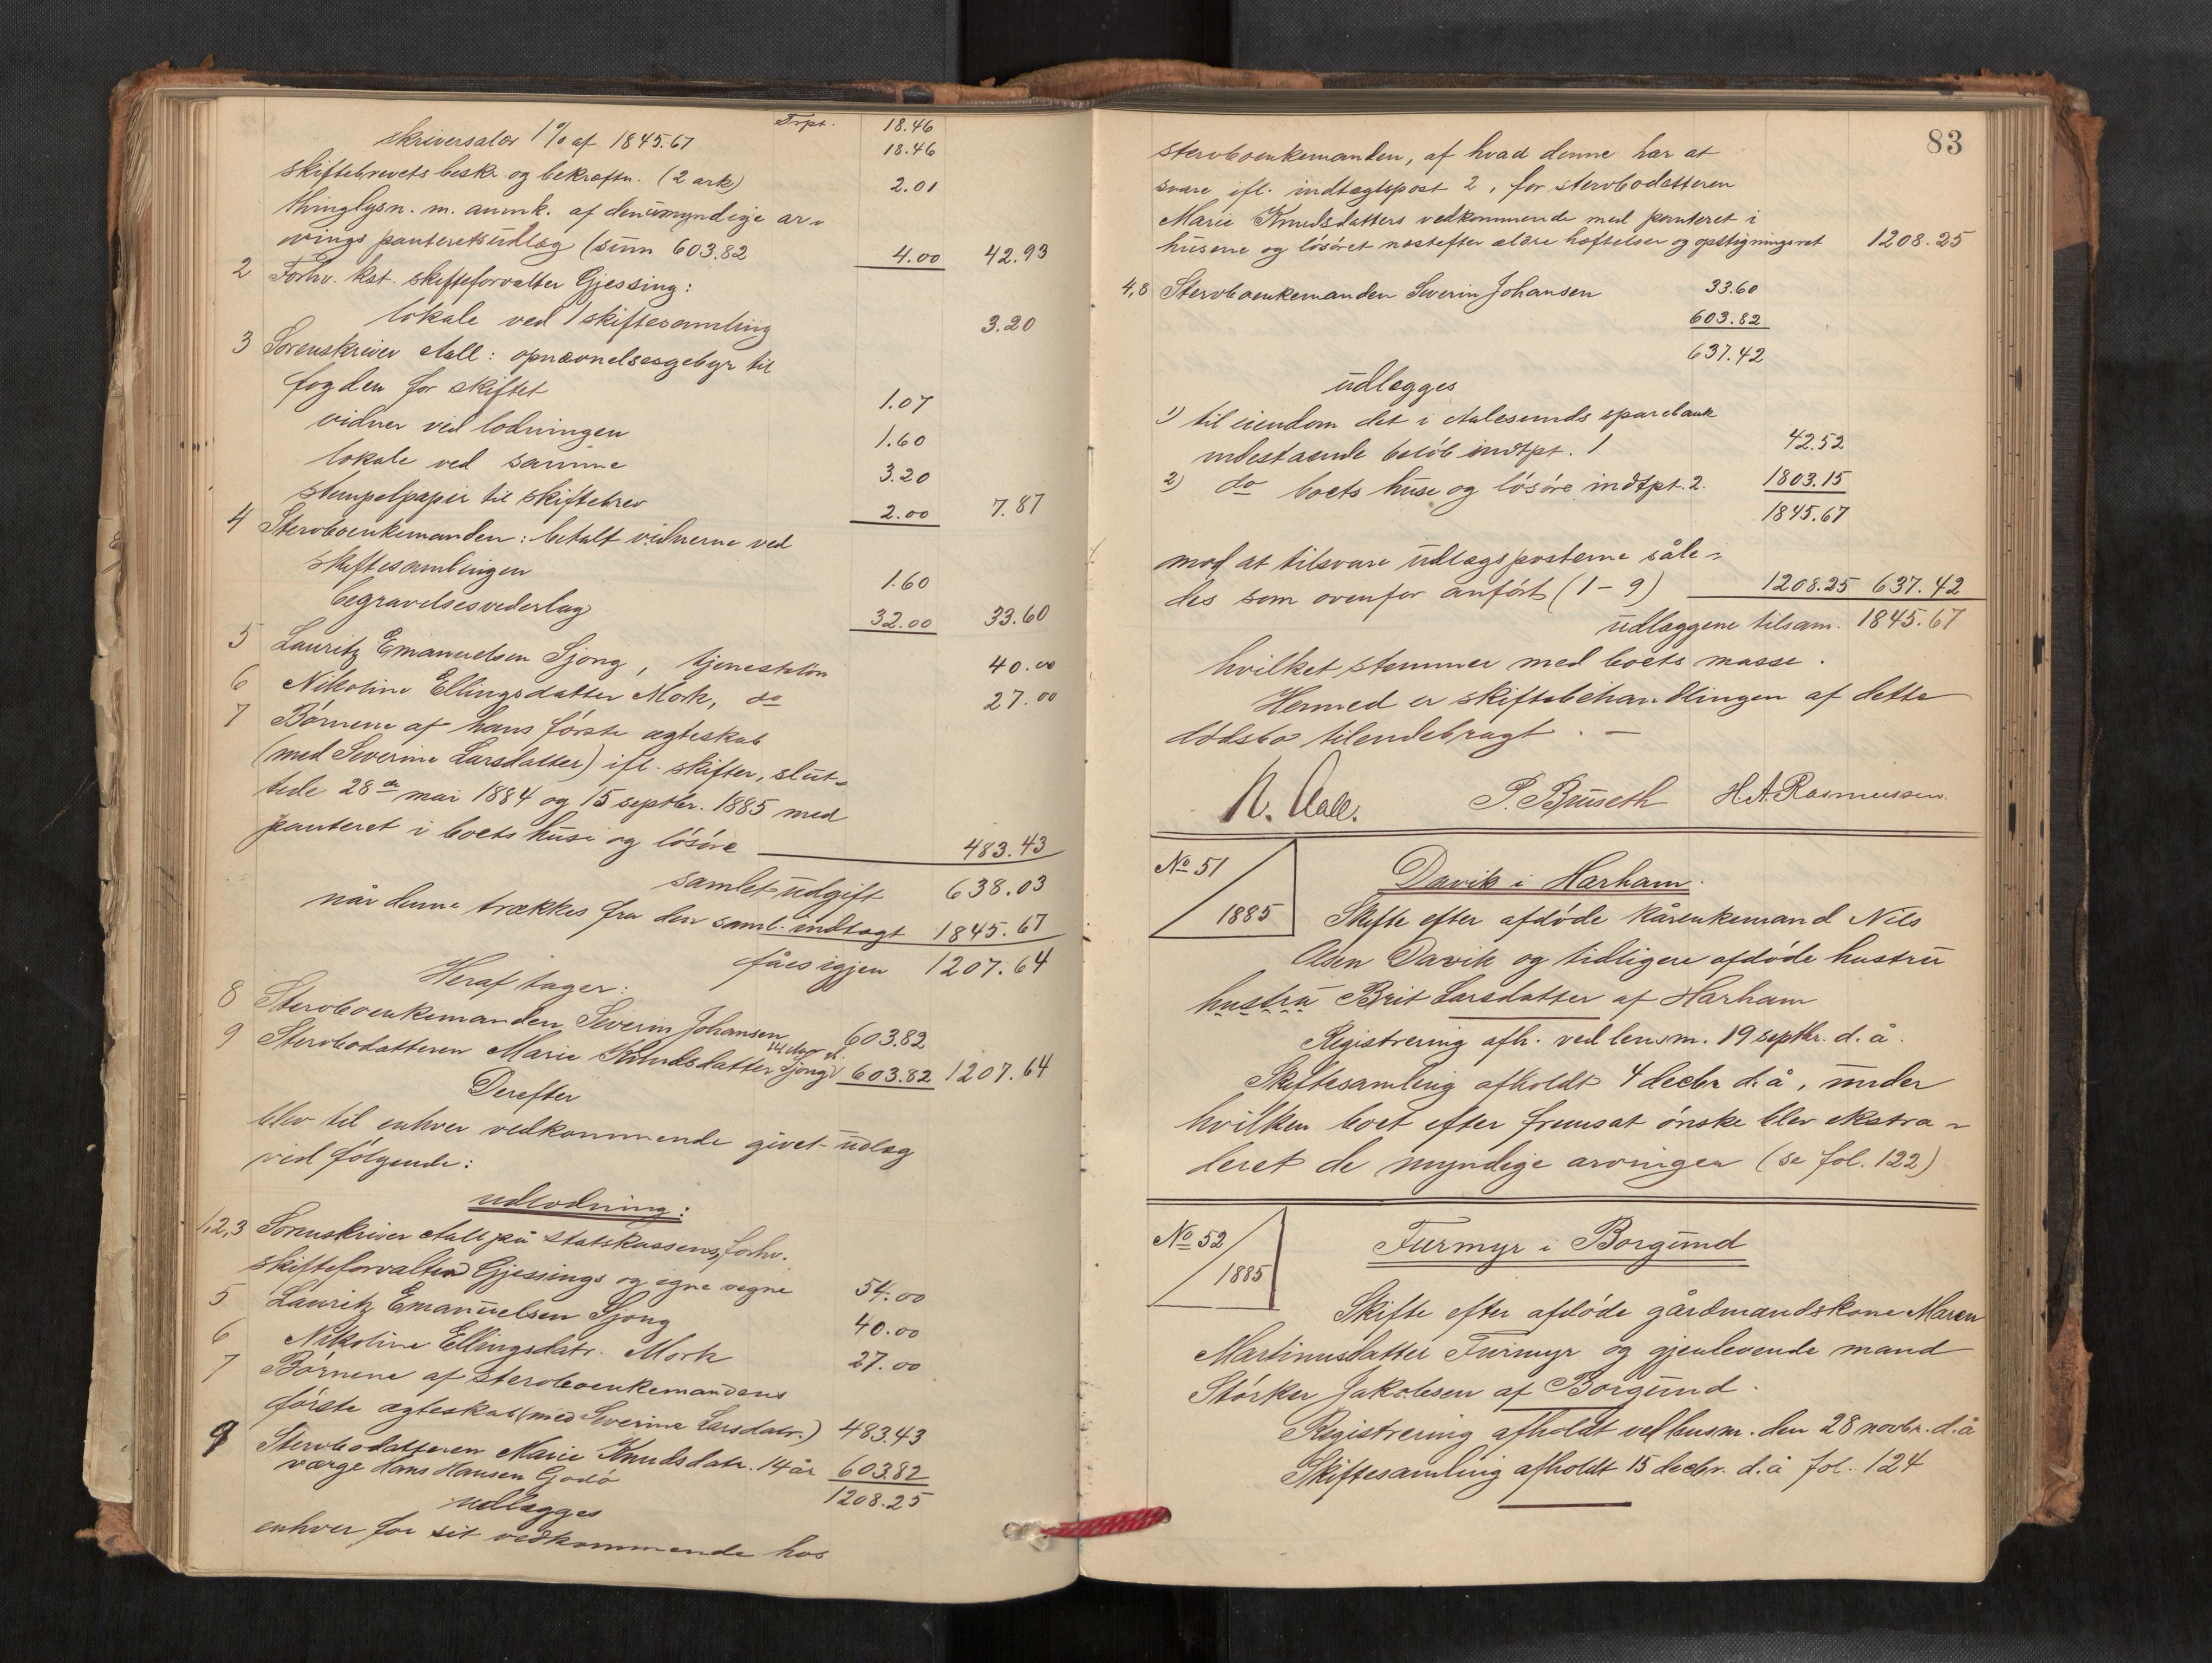 Trpt. 18.46
skriversalær 1 % af 1845.67 18.46
skiftebrevets beskr. og bekræftn. (2 ark) 2.01
thinglysn. m. anmk. af den umyndige ar-
vings panteretsudlæg (sum 603.82 4.00 42.93
2 Forhv. kst. skifteforvalter Gjessing:
lokale ved 1 skiftesamling 3.20
3 Sorenskriver Aall: opnævnelsesgebyr til
fogden for skiftet 1.07
vidner ved lodningen 1.60
lokale ved samme 3.20
stempelpapir til skiftebrev 2.00 7.87
4 Stervboenkemanden: betalt vidnerne ved
skiftesamlingen 1.60
begravelsesvederlag 32.00 33.60
5 Lauritz Emanuelsen Sjong, tjenesteløn 40.00
6 Nikoline Ellingsdatter Mork, do 27.00
7 Børnene af hans første ægteskab
(med Severine Larsdatter) ifl. skifter, slut-
tede 28de mai 1884 og 15 septbr. 1885 med
panteret i boets huse og løsøre 483.43
samlet udgift 638.03
når denne trækkes fra den saml. indtægt 1845.67
fåes igjen 1207.64
Heraf tager:
8 Stervboenkemanden Severin Johansen 603.82
9 Stervbodatteren Marie Knudsdatter Sjong 603.82 1207.64
Derefter
blev til enhver vedkommende givet udlæg
ved følgende:
udlodning:
1,2,3 Sorenskriver Aall på statskassens, forhv.
skifteforvalter Gjessings og egne vegne 54.00
5 Lauritz Emanuelsen Sjong 40.00
6 Nikoline Ellingsdatr. Mork 27.00
7 Børnene af stervboenkemandens
første ægteskab (med Severine Larsdatr.) 483.43
9 Stervbodatteren Marie Knudsdatr. 14 år 603.82
værge Hans Hansen Godø 1208.25
udlægges
enhver for sit vedkommende hos
83
stervboenkemanden, af hvad denne har at
svare ifl. indtægtspost 2, for stervbodatteren
Marie Knudsdatters vedkommende med panteret i
husene og løsøret næstefter ældre hæftelser og opstigningsret 1208.25
4,8 Stervboenkemanden Severin Johansen 33.60
603.82
637.42
udlægges
1) til eiendom det i Aalesunds sparebank
indestaaende beløb indtpt. 1 42.52
2) do boets huse og løsøre indtpt. 2. 1803.15
1845.67
mod at tilsvare udlægsposterne såle-
des som ovenfor anført (1-9) 1208.25 637.42
udlæggene tilsam. 1845.67
hvilket stemmer med boets masse.
Hermed er skiftebehandlingen af dette
dødsbo tilendebragt. —
N. Aall. P. Bruseth H. A. Rasmussen.
No 51
1885
Davik i Harham.
Skifte efter afdøde kårenkemand Nils
Olsen Davik og tidligere afdøde hustru
hustru Brit Larsdatter af Harham
Registrering afh. ved lensm. 19 septbr. d. å.
Skiftesamling afholdt 4 decbr d. å, under
hvilken boet efter fremsat ønske blev ekstra-
deret de myndige arvinger (se fol. 122)
No 52
1885
Furmyr i Borgund
Skifte efter afdøde gårdmandskone Maren
Martinusdatter Furmyr og gjenlevende mand
Størker Jakobsen af Borgund.
Registrering afholdt ved lensm. den 28 novbr. d. å
Skiftesamling afholdt 15 decbr. d. å fol. 124